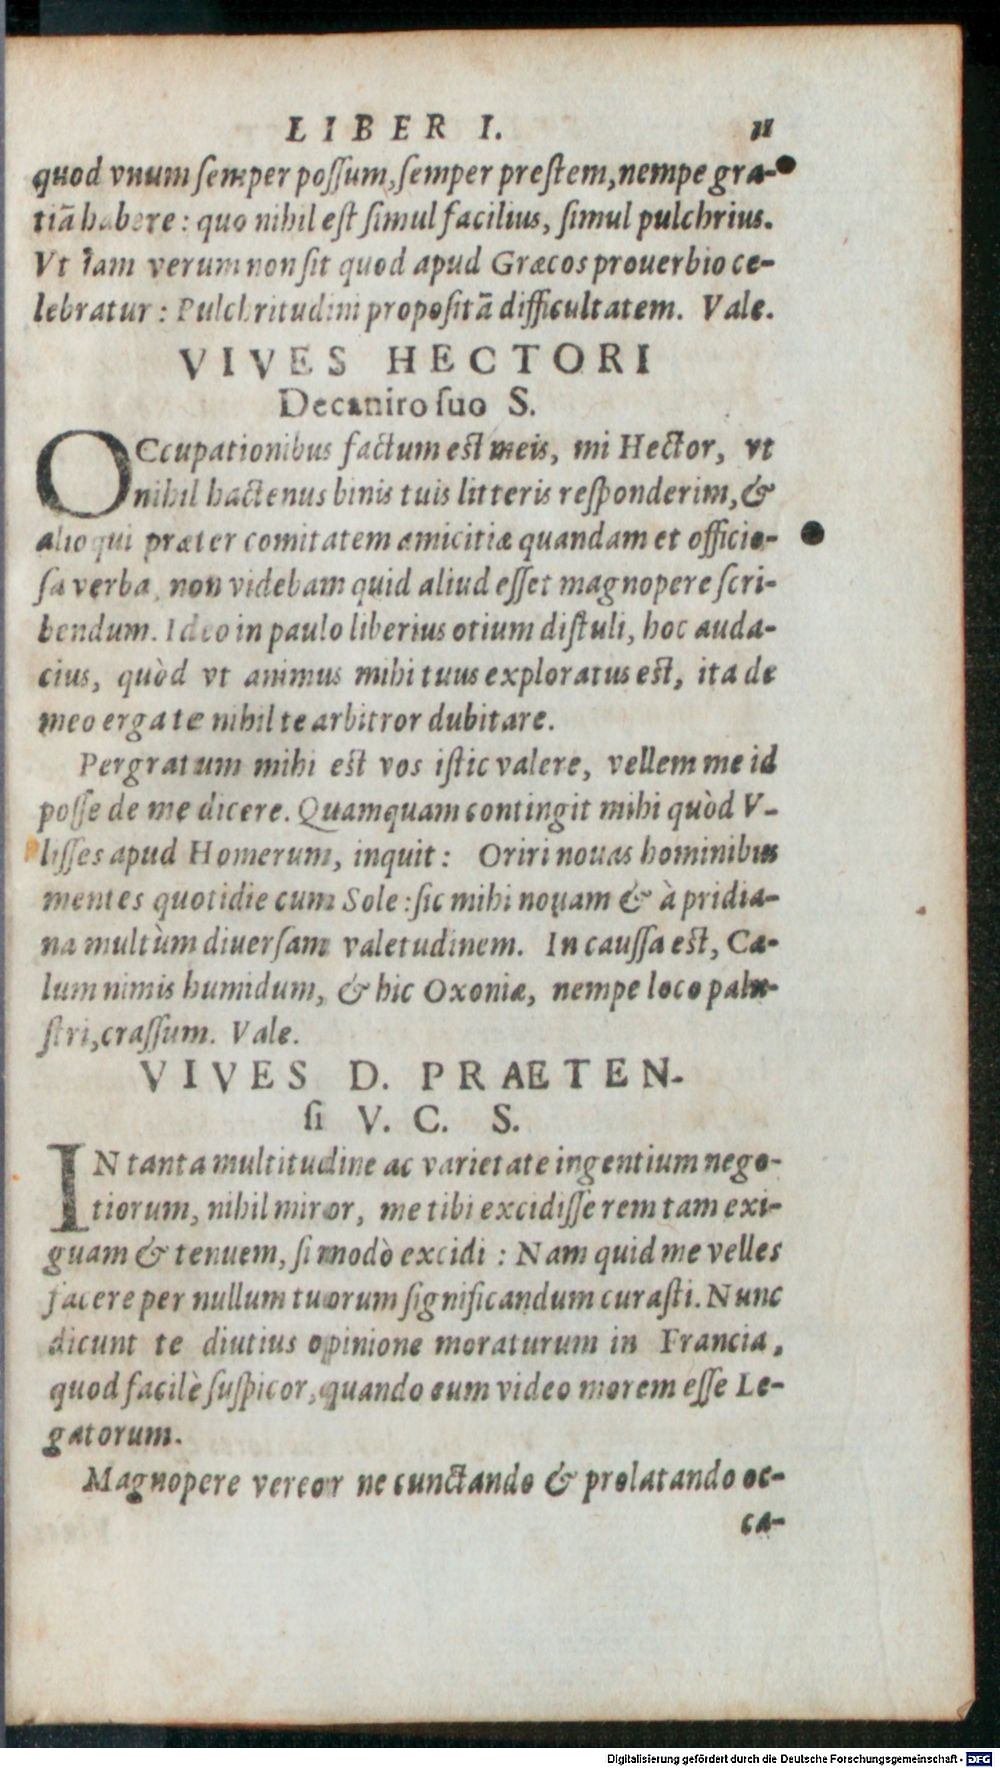 LIBER I. 11
quod vnum ſemper poſſum, ſemper preſtem, nempe gra-
tiã habere: quo nihil eſt ſimul facilius, ſimul pulchrius.
Vt iam verum non ſit quod apud Græcos prouerbio ce-
lebratur: Pulchritudini propoſitã difficultatem. Vale.
VIVES HECTORI
Decaniro ſuo S.
OCcupationibus factum eſt meis, mi Hector, vt
nihil hactenus binis tuis litteris reſponderim, &
alioqui præter comitatem amicitiæ quandam et officio-
ſa verba, non videbam quid aliud eſſet magnopere ſcri-
bendum. Ideo in paulo liberius otium diſtuli, hoc auda-
cius, quòd vt animus mihi tuus exploratus eſt, ita de
meo erga te nihil te arbitror dubitare.
Pergratum mihi eſt vos iſtic valere, vellem me id
poſſe de me dicere. Quamquam contingit mihi quòd V-
liſſes apud Homerum, inquit: Oriri nouas hominibus
mentes quotidie cum Sole: ſic mihi nouam & à pridia-
na multùm diuerſam valetudinem. In cauſſa eſt, Cæ-
lum nimis humidum, & hic Oxoniæ, nempe loco palu-
ſtri, craſſum. Vale.
VIVES D. PRAETEN-
ſi V. C. S.
IN tanta multitudine ac varietate ingentium nego-
tiorum, nihil miror, me tibi excidiſſe rem tam exi-
guam & tenuem, ſi modò excidi: Nam quid me velles
facere per nullum tuorum ſignificandum curaſti. Nunc
dicunt te diutius opinione moraturum in Francia,
quod facilè ſuſpicor, quando eum video morem eſſe Le-
gatorum.
Magnopere vereor ne cunctando & prolatando oc-
ca-
Digitalisierung gefördert durch die Deutsche Forschungsgemeinschaft - DFG